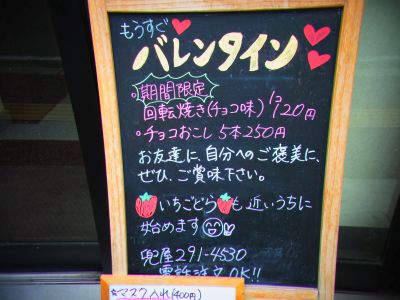 もうすぐ
バレンタイン
・期間限定
回転焼き(チョコ味)1コ120円
・チョコおこし 5本250円
お友達に、自分へのご褒美に、
ぜひ、ご賞味下さい。
いちごどらも近いうちに
始めます
兜屋 291-4530
電話注文OK!!
☆マスク入れ(400円)